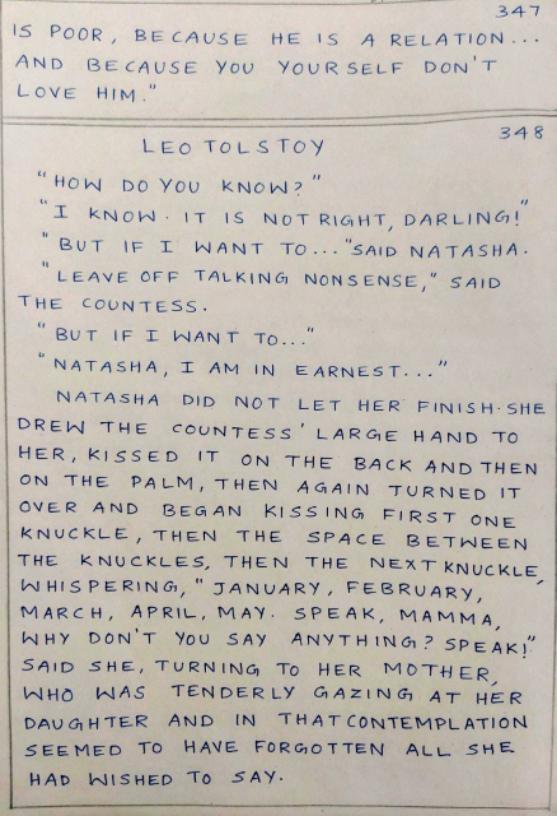 347
IS POOR, BECAUSE HE IS A RELATION...
AND BECAUSE YOU YOURSELF DON'T
LOVE HIM."
348
LEO TOLSTOY
"HOW DO YOU KNOW?"
"I KNOW. IT IS NOT RIGHT, DARLING!"
"BUT IF I WANT TO... "SAID NATASHA.
"LEAVE OFF TALKING NONSENSE," SAID
THE COUNTESS.
"BUT IF I WANT TO..."
"NATASHA, I AM IN EARNEST..."
NATASHA DID NOT LET HER FINISH. SHE
DREW THE COUNTESS' LARGE HAND TO
HER, KISSED IT ON THE BACK AND THEN
ON THE PALM, THEN AGAIN TURNED IT
OVER AND BEGAN KISSING FIRST ONE
KNUCKLE, THEN THE SPACE BETWEEN
THE KNUCKLES, THEN THE NEXT KNUCKLE,
WHISPERING, "JANUARY, FEBRUARY,
MARCH, APRIL, MAY. SPEAK, MAMMA,
WHY DON'T YOU SAY ANYTHING? SPEAK!"
SAID SHE, TURNING TO HER MOTHER,
WHO WAS TENDERLY GAZING AT HER
DAUGHTER AND IN THAT CONTEMPLATION
SEEMED TO HAVE FORGOTTEN ALL SHE
HAD WISHED TO SAY.